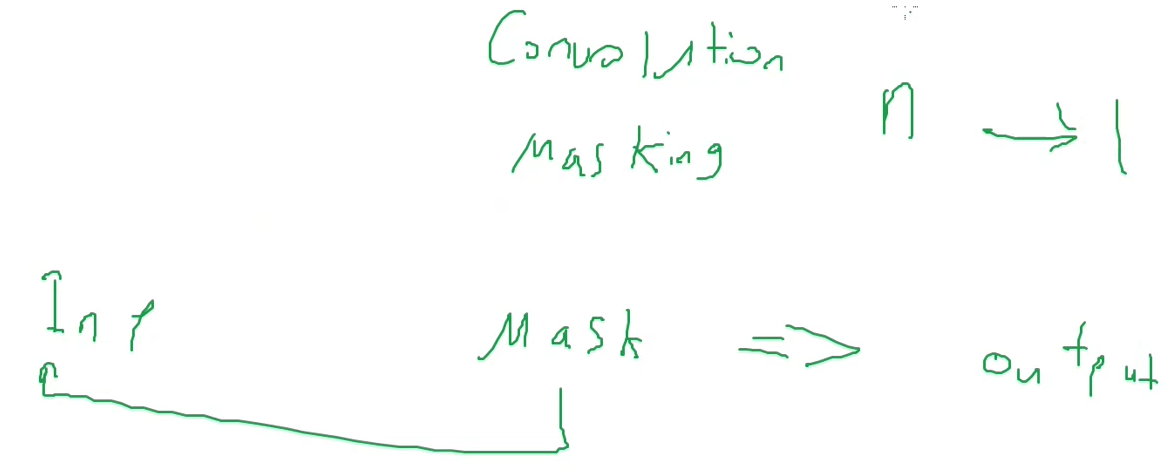 Convolution
Masking
n → 1
Inp
Mask ⇒ output